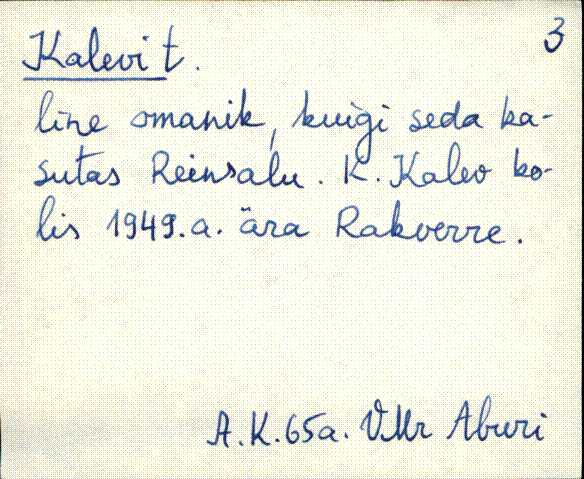 3
Kalevi t.
line omanik, kuigi seda ka-
sutas Reinsalu. K. Kalev ko-
lis 1949.a. ära Rakverre.
A.K. 65a. VMr Aburi